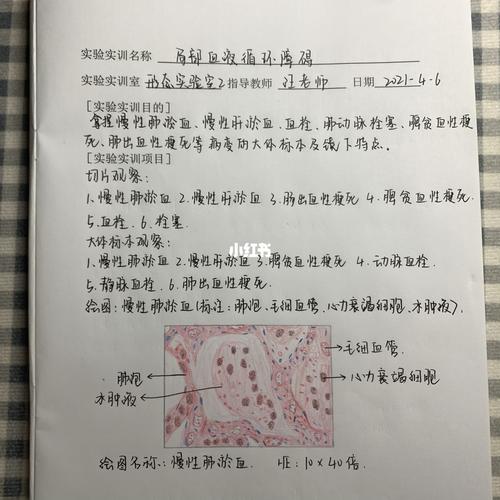 实验实训名称 局部血液循环障碍
实验实训室 形态实验室2 指导教师 汪老师 日期 2021-4-6
[实验实训目的]
掌握慢性肺淤血、慢性肝淤血、血栓、肺动脉栓塞、脾贫血性梗
死、肺出血性梗死等病变的大体标本及镜下特点。
[实验实训项目]
切片观察:
1.慢性肺淤血 2.慢性肝淤血 3.肺出血性梗死 4.脾贫血性梗死
5.血栓. 6.栓塞.
大体标本观察:
1.慢性肺淤血 2.慢性肝淤血 3.脾贫血性梗死 4.动脉血栓.
5.静脉血栓. 6.肺出血性梗死.
小红书
绘图:慢性肺淤血(标注:肺泡、毛细血管、心力衰竭细胞、水肿液).
毛细血管
肺泡
心力衰竭细胞
水肿液
绘图名称:慢性肺淤血. HE:10×40倍.